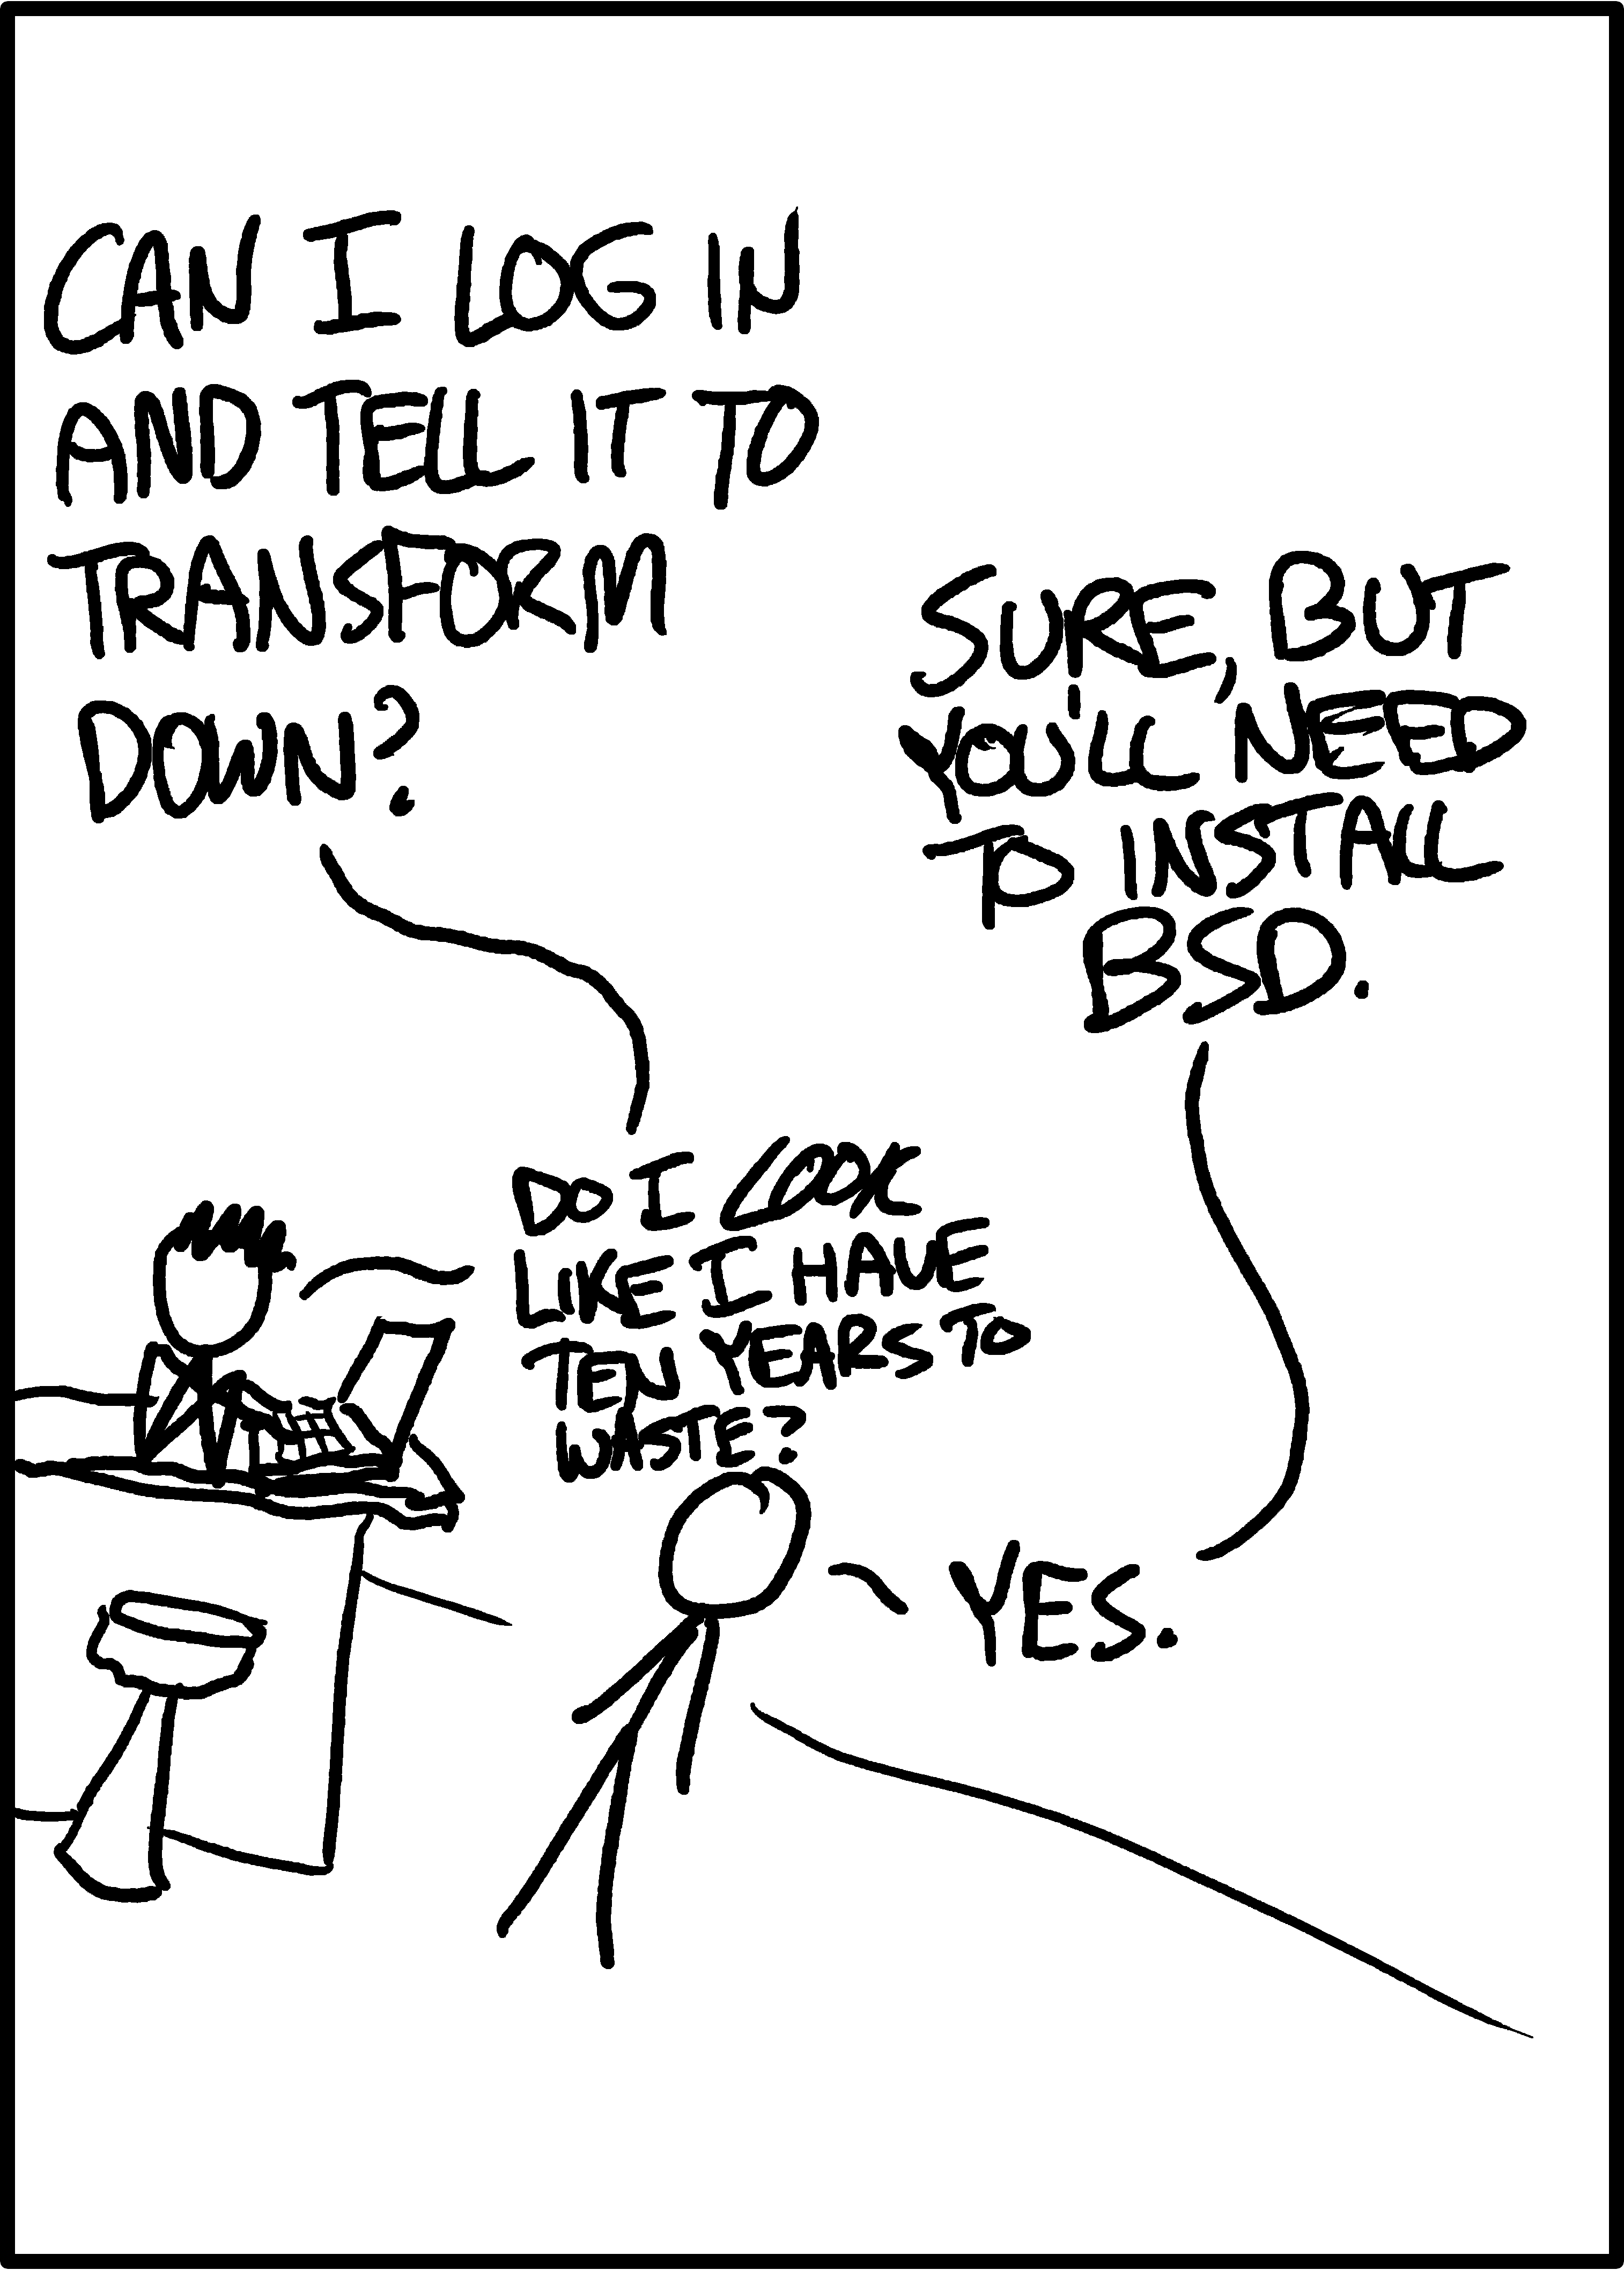 CAN I LOG IN
AND TELL IT TO
TRANSFORM
DOWN?
SURE, BUT
YOU'LL NEED
TO INSTALL
BSD.
DO I LOOK
LIKE I HAVE
TEN YEARS TO
WASTE?
YES.